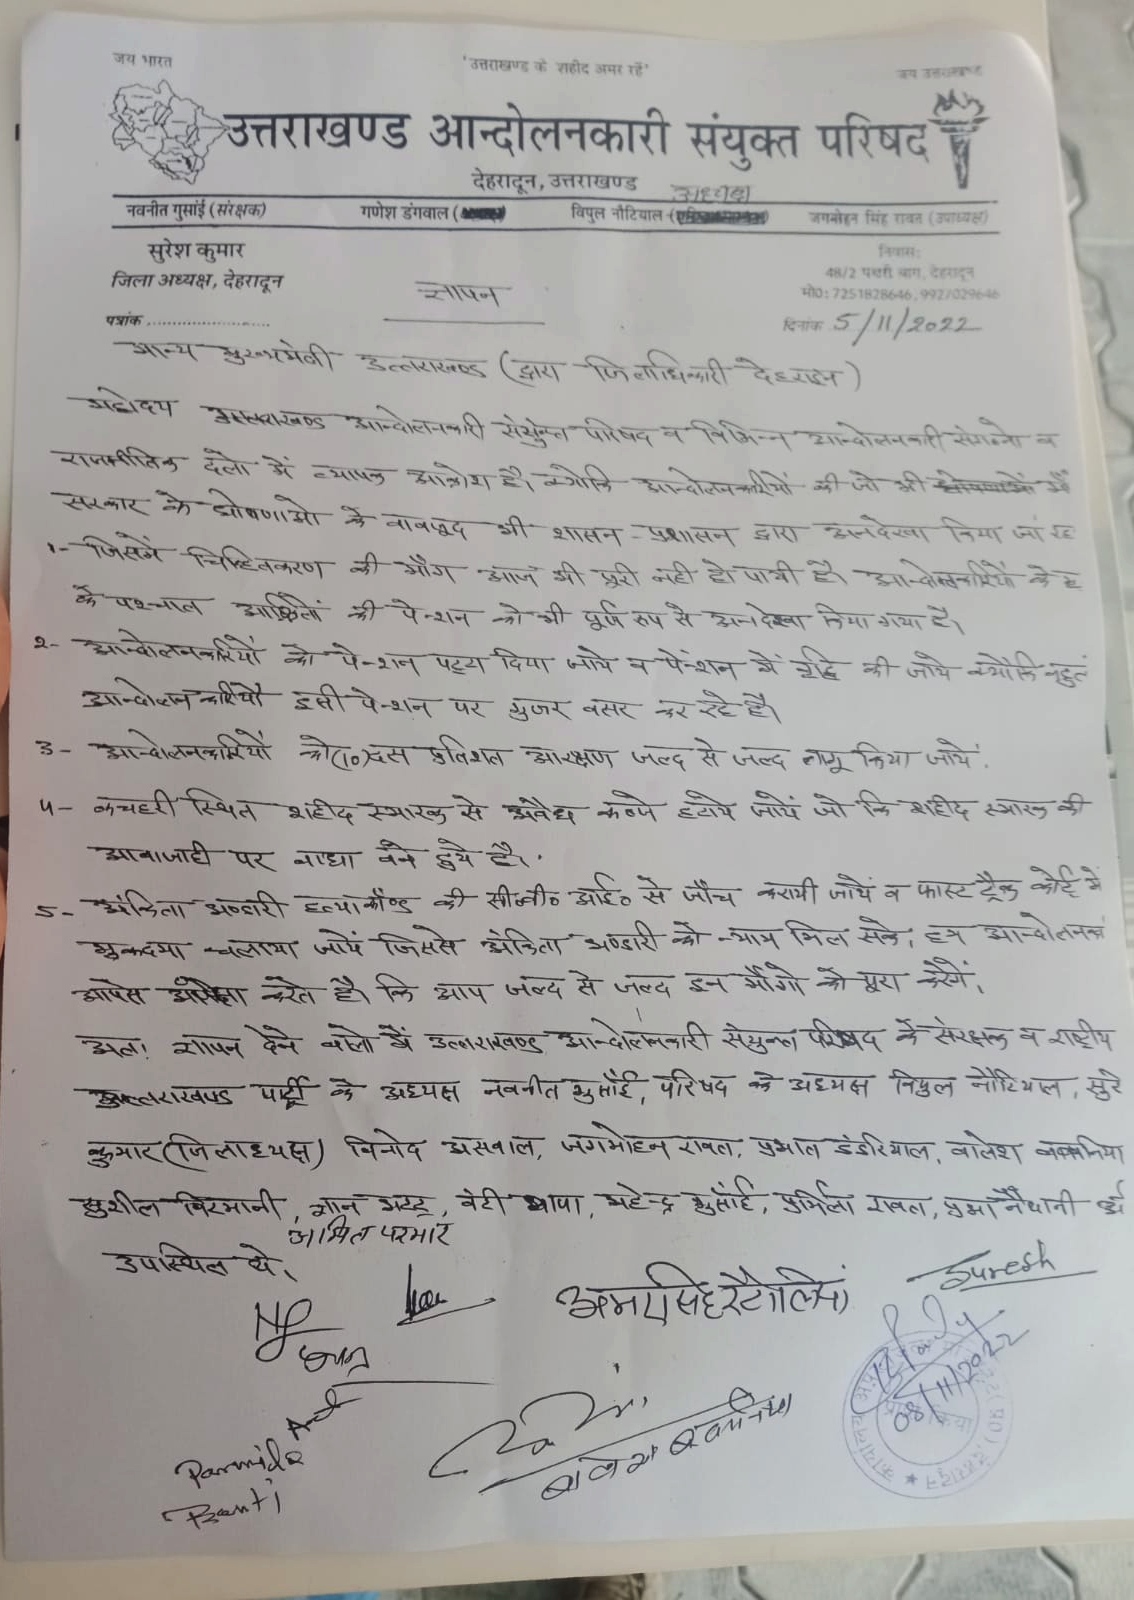 जय भारत
'उत्तराखण्ड के शहीद अमर रहें'
जय उत्तराखण्ड
उत्तराखण्ड आन्दोलनकारी संयुक्त परिषद
देहरादून, उत्तराखण्ड
अध्यक्ष
नवनीत गुसाईं (संरक्षक) गणेश डंगवाल ( विपुल नौटियाल ( जगमोहन सिंह रावत (उपाध्यक्ष)
सुरेश कुमार
जिला अध्यक्ष, देहरादून
निवास:
48/2 पथरी बाग, देहरादून
मो0: 7251828646, 9927029646
ज्ञापन
पत्रांक ........................
दिनांक 5/11/2022
मान्य मुख्यमंत्री उत्तराखण्ड (द्वारा जिलाधिकारी देहरादून)
महोदय उत्तराखण्ड आन्दोलनकारी संयुक्त परिषद व विभिन्न आन्दोलनकारी संगठनो व
राजनीतिक दलो में व्यापक आक्रोश है। क्योकि आन्दोलनकारियों की जो भी
सरकार के घोषणाओ के बावजूद भी शासन-प्रशासन द्वारा अनदेखा किया जा रह
1- जिसमें चिन्हितकरण की माँग आज भी पूरी नही हो पायी है। आन्दोलनकारियों के
के पश्चात आश्रितों की पेन्शन को भी पूर्ण रुप से अनदेखा किया गया है।
2- आन्दोलनकारियों को पेन्शन पट्टा दिया जाये व पेन्शन में वृद्धि की जाये क्योकि बहुत
आन्दोलनकारियों इसी पेन्शन पर गुजर बसर कर रहे है।
3- आन्दोलनकारियों को (10) दस प्रतिशत आरक्षण जल्द से जल्द लागू किया जाये।
4- कचहरी स्थित शहीद स्मारक से अवैध कब्जे हटाये जायें जो कि शहीद स्मारक की
आवाजाही पर बाधा बने हुये है।
5- अंकिता भण्डारी हत्याकाँण्ड की सी०बी० आई० से जाँच करायी जायें व फास्ट ट्रैक कोर्ट में
मुकदमा चलाया जायें जिससे अंकिता भण्डारी को न्याय मिल सके, हम आन्दोलनका
आपसे अपेक्षा करते है। कि आप जल्द से जल्द इन माँगो को पूरा करेगें,
अतः ज्ञापन देने वालो में उत्तराखण्ड आन्दोलनकारी संयुक्त परिषद के संरक्षक व राष्ट्रीय
उत्तराखण्ड पार्टी के अध्यक्ष नवनीत गुसाँई, परिषद के अध्यक्ष विपुल नौटियाल, सुरे
कुमार (जिलाध्यक्ष) विनोद असवाल, जगमोहन रावत, प्रभात डंडरियाल, बालेश बवानिया
सुशील विरमानी, ज्ञान भट्ट, बेटी थापा, महेन्द्र गुसाँई, प्रमिला रावत, प्रभा नैथानी
अमित परमार
उपस्थित थे,
Suresh
Parmila
Banti
बालेश बवानिया
08/11/2022